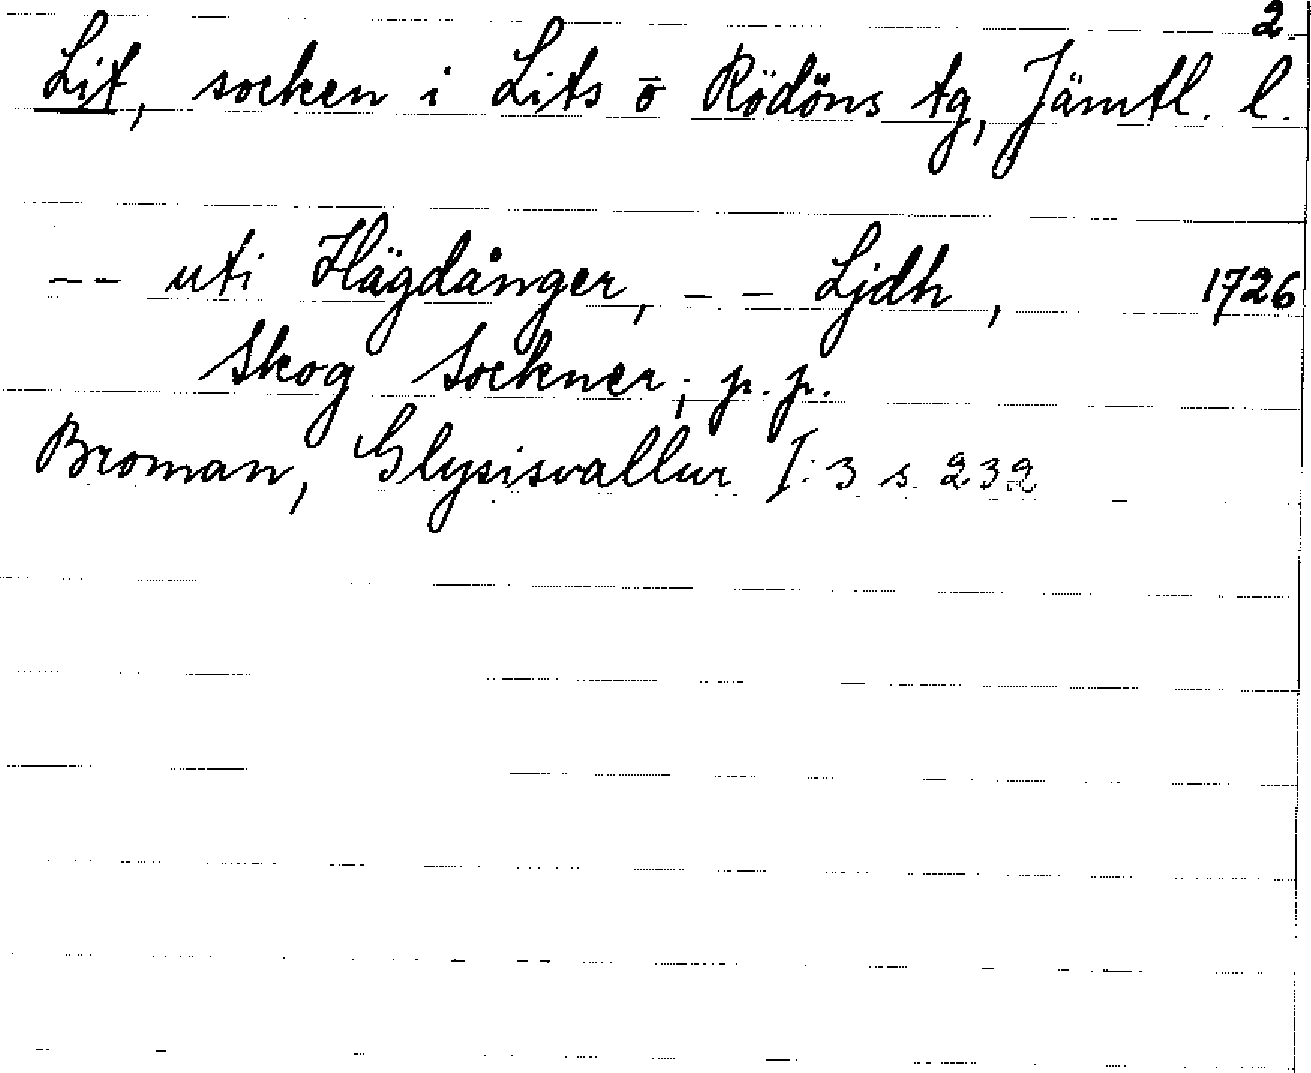 2.
Lit, socken i Lits o Rödöns tg, Jämtl. l.
-- uti Hägdånger, -- Ljdh, 1726
Skog Sockner; p.p.
Broman, Glysisvallur I:3 s. 232